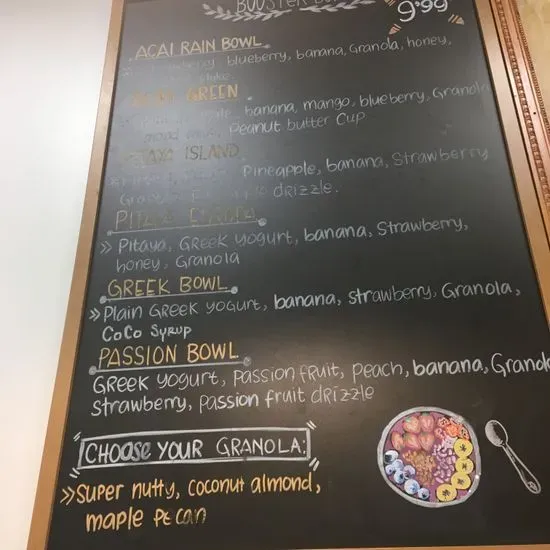 BOOSTER
9.99
ACAI RAIN BOWL
blueberry, banana, Granola, honey,
GREEN
banana, mango, blueberry, Granola
Peanut butter Cup
ISLAND
Pineapple, banana, Strawberry
drizzle.
» Pitaya, Greek yogurt, banana, Strawberry,
honey, Granola
GREEK BOWL
» Plain Greek yogurt, banana, strawberry, Granola,
CoCo Syrup
PASSION BOWL
Greek yogurt, Passion fruit, peach, banana, Granola
strawberry, passion fruit drizzle
CHOOSE YOUR GRANOLA:
» Super nutty, coconut almond,
maple Pecan